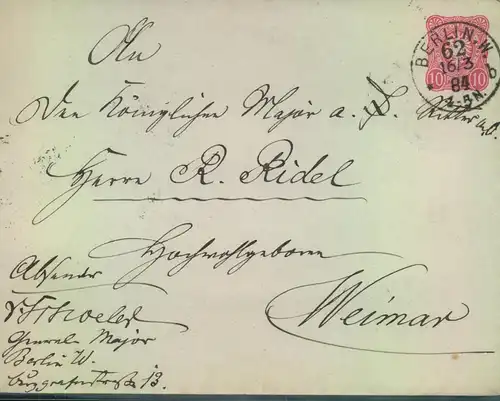 BERLIN.W.
62
16/3
84
4-5N.
b
10 10
An
Den Königlichen Major a. D. Ritter
Herrn R. Ridel
Hochwohlgeboren
Weimar
Absender
General Major
Berlin W.
Burggrafenstraße 13.